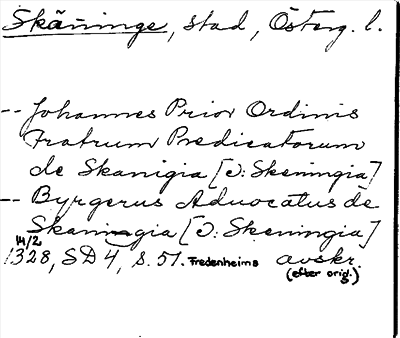 Skäninge, stad, Österg. l.
-- Johannes Prior Ordinis
Fratrum Predicatorum
de Skanigia [ɔ: Skeningia]
-- Byrgerus Aduocatus de
Skaningia [ɔ: Skeningia]
14/2
1328, SD 4, s. 51. Fredenheims avskr.
(efter orig.)